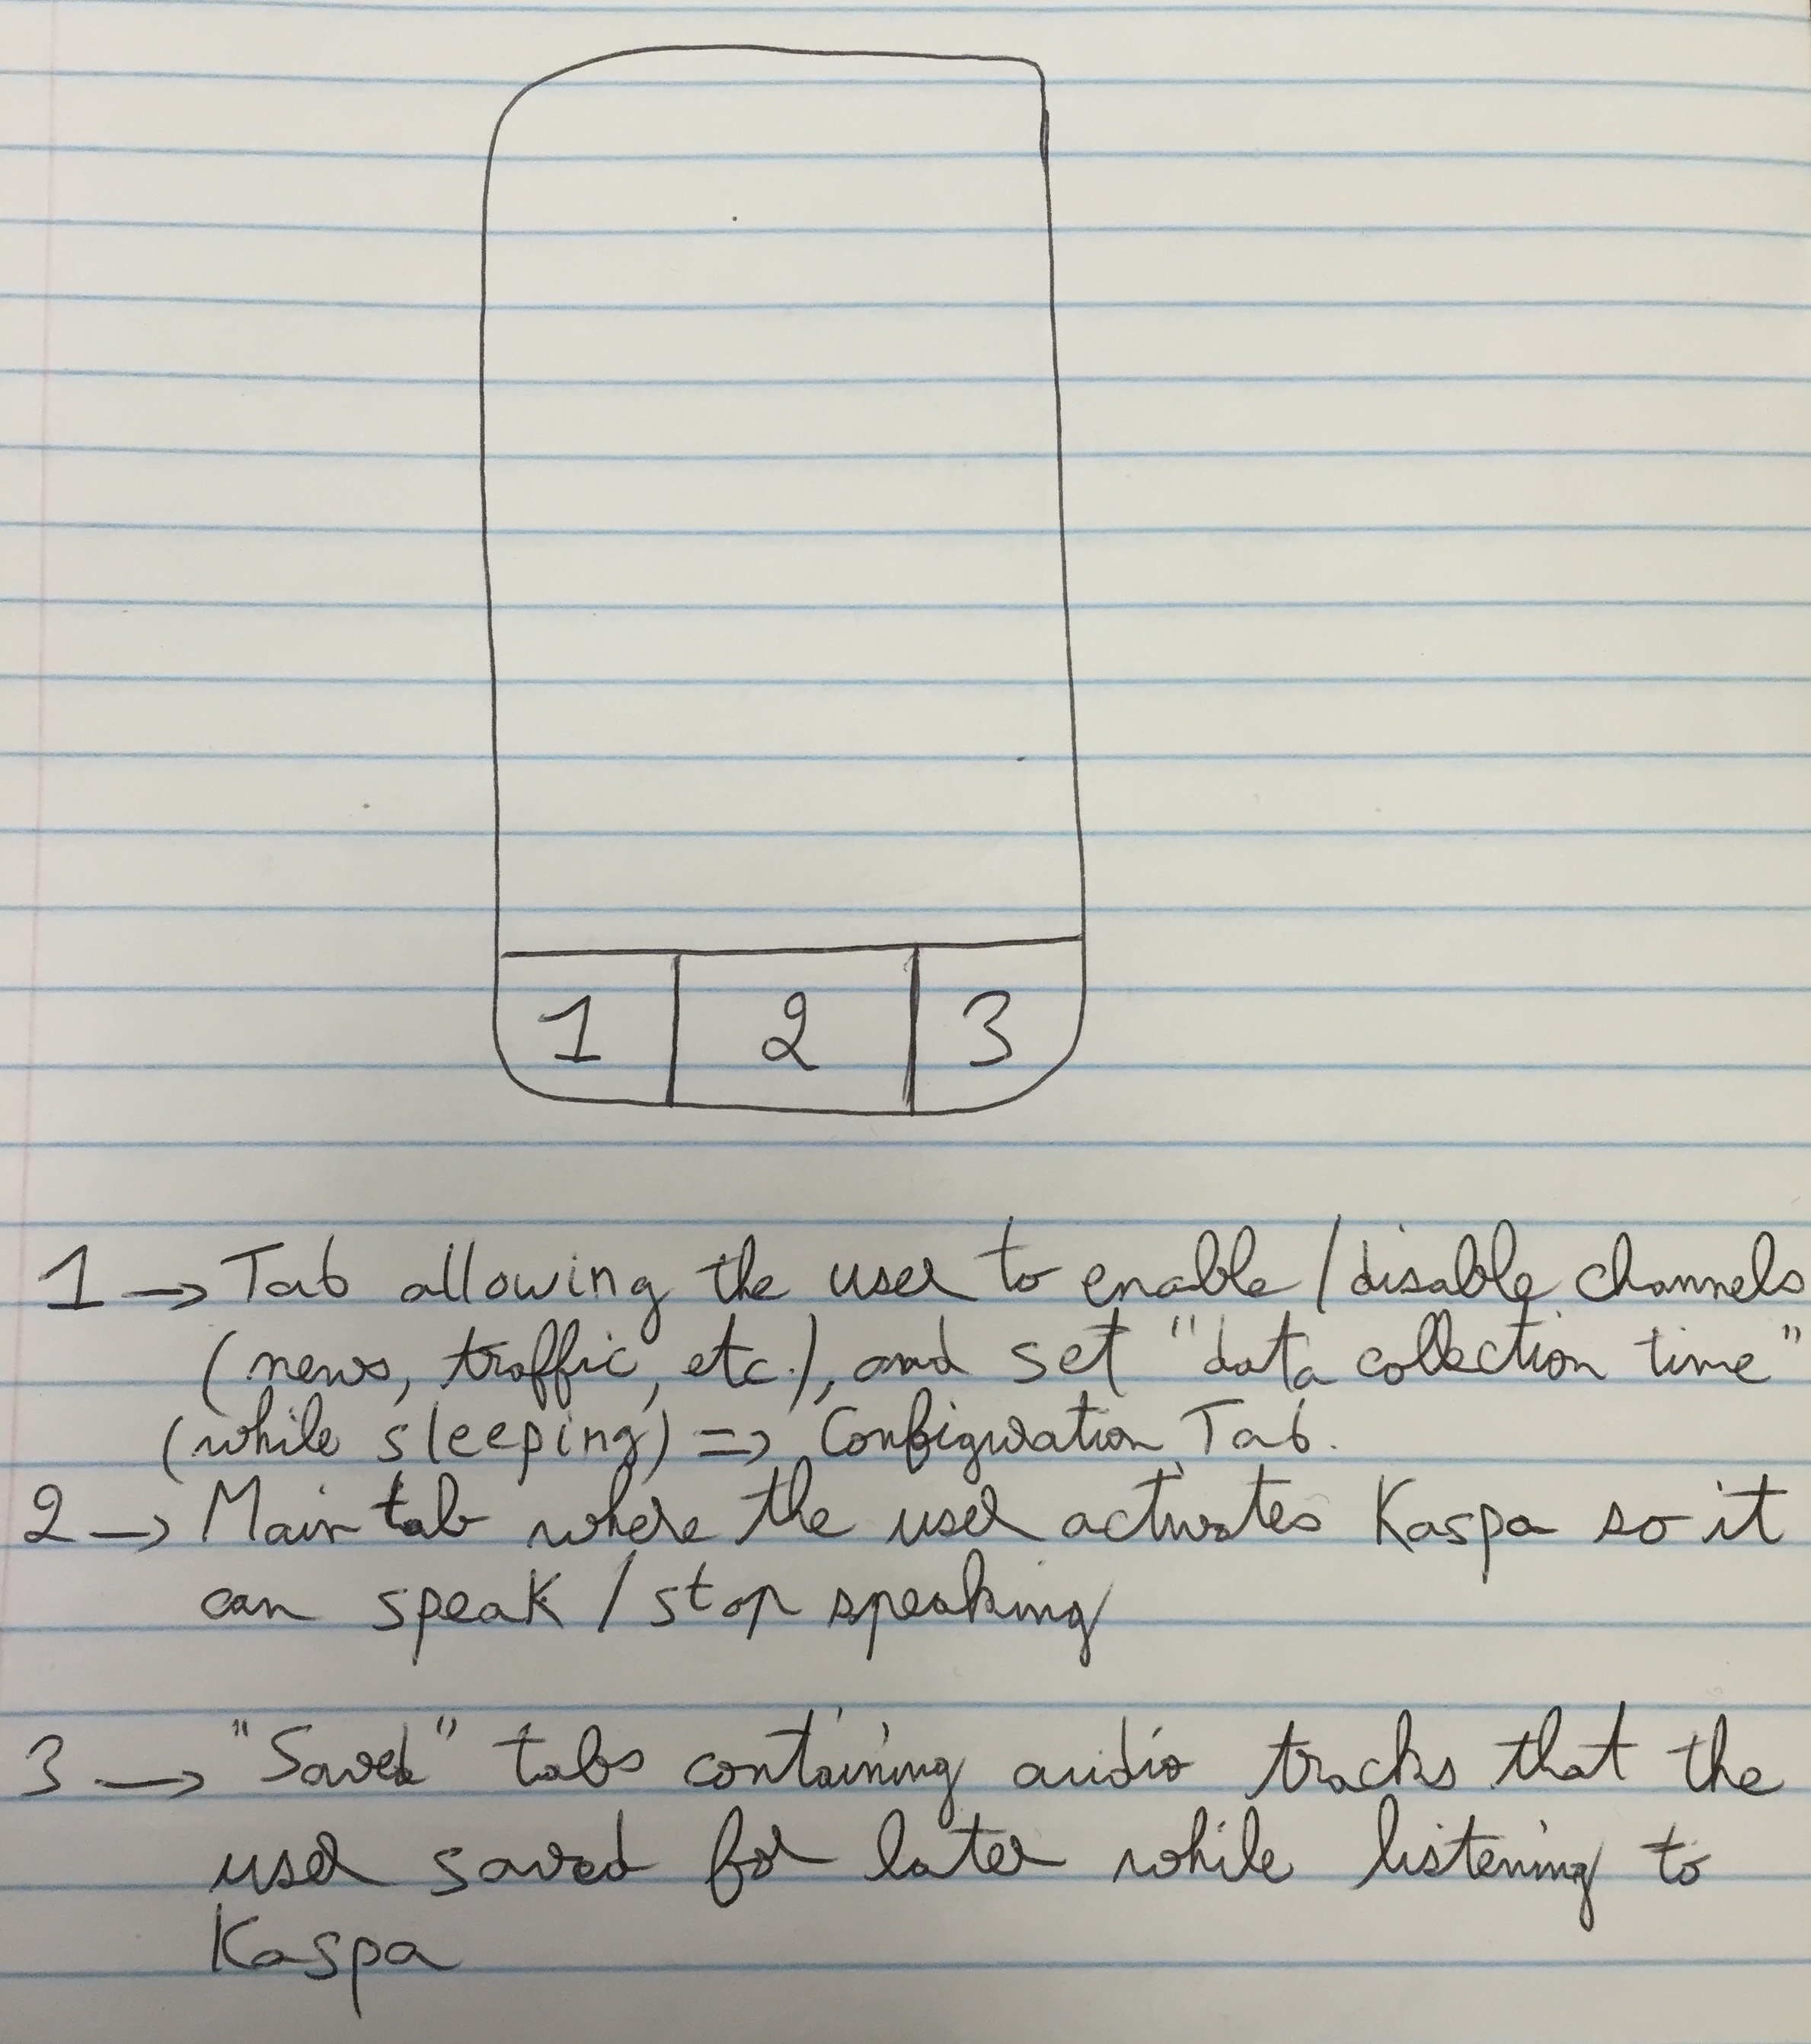 1 2 3
1 → Tab allowing the user to enable/disable channels
(news, traffic, etc.), and set "data collection time"
(while sleeping) => Configuration Tab.
2 → Main tab where the user activates Kaspa so it
can speak / stop speaking
3 → "Saved" tabs containing audio tracks that the
user saved for later while listening to
Kaspa